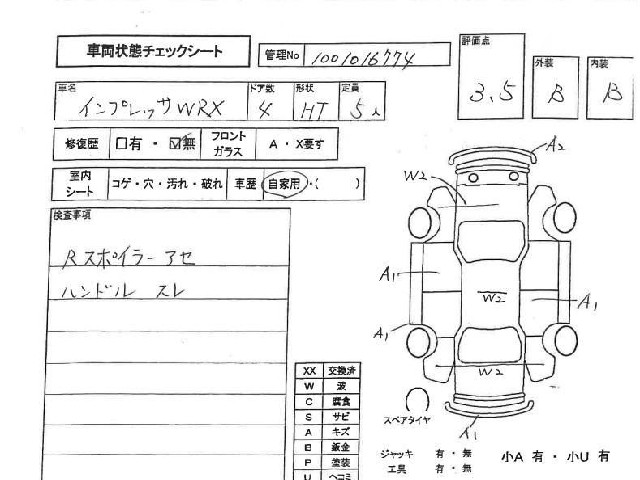 車両状態チェックシート
管理No 1001016774
評価点 3.5
外装 B
内装 B
車名 インプレッサWRX
ドア数 4
形状 HT
定員 5人
修復歴 □有・☑無
フロントガラス A・X要す
室内シート コゲ・穴・汚れ・破れ
車歴 自家用・( )
検査事項
Rスポイラーアセ
ハンドル スレ
A2
W2
A1
W2
A1
A1
W2
スペアタイヤ
XX 交換済
W 波
C 腐食
S サビ
A キズ
B 鈑金
P 塗装
U ヘコミ
ジャッキ 有・無
工具 有・無
小A 有・小U 有